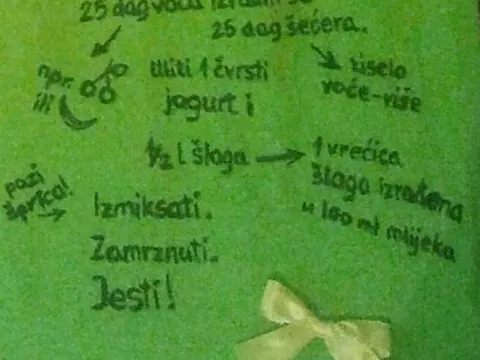 25 dag voća izradim sa
25 dag šećera.
npr.
ili
kiselo
voće-više
Uliti 1 čvrsti
jogurt i
1/2 l šlaga
1 vrećica
šlaga izrađena
u 160 ml mlijeka
pazi
šprica!
Izmiksati.
Zamrznuti.
Jesti!